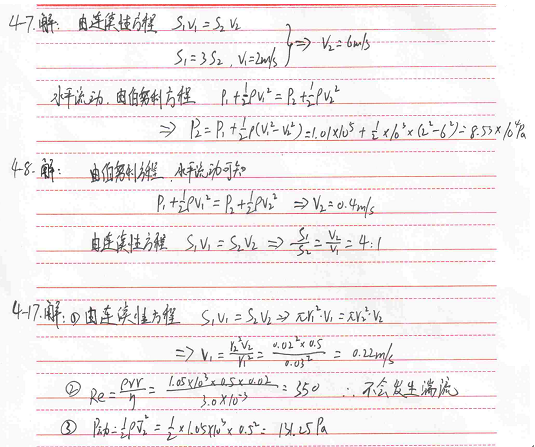 4-7.解: 由连续性方程 S₁V₁ = S₂V₂
S₁=3S₂, V₁=2m/s } ⇒ V₂=6m/s
水平流动,由伯努利方程 P₁+½ρV₁²=P₂+½ρV₂²
⇒ P₂=P₁+½ρ(V₁²-V₂²)=1.01×10⁵+½×10³×(2²-6²)=8.53×10⁴Pa
4-8.解: 由伯努利方程,水平流动可知
P₁+½ρV₁²=P₂+½ρV₂² ⇒ V₂=0.4m/s
由连续性方程 S₁V₁=S₂V₂ ⇒ S₁/S₂=V₂/V₁=4:1
4-17.解: ① 由连续性方程 S₁V₁=S₂V₂ ⇒ πr₁²·V₁=πr₂²·V₂
⇒ V₁=r₂²V₂/r₁²=0.02²×0.5/0.03²=0.22m/s
② Re=ρvr/η=1.05×10³×0.5×0.02/3.0×10⁻³=350 ∴不会发生湍流
③ P动=½ρV₂²=½×1.05×10³×0.5²=131.25Pa